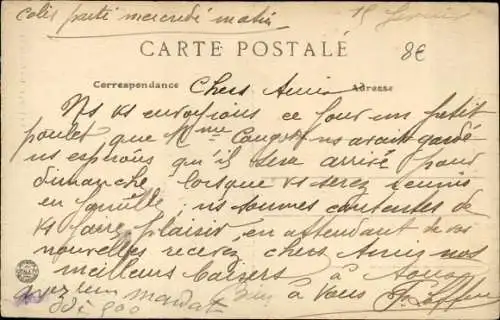 colis parti mercredi matin
15 fevrier
CARTE POSTALE
8€
Correspondance
Adresse
Chers Amis
Ns vs envoyons ce jour un petit
poulet que Mme ns avait gardé
ns espérons qu'il sera arrivé pour
dimanche, lorsque vs serez réunis
en famille; ns sommes contentes de
vs faire plaisir, en attendant de vos
nouvelles recevez chers Amis nos
meilleurs baisers à
Bien à vous
mandat